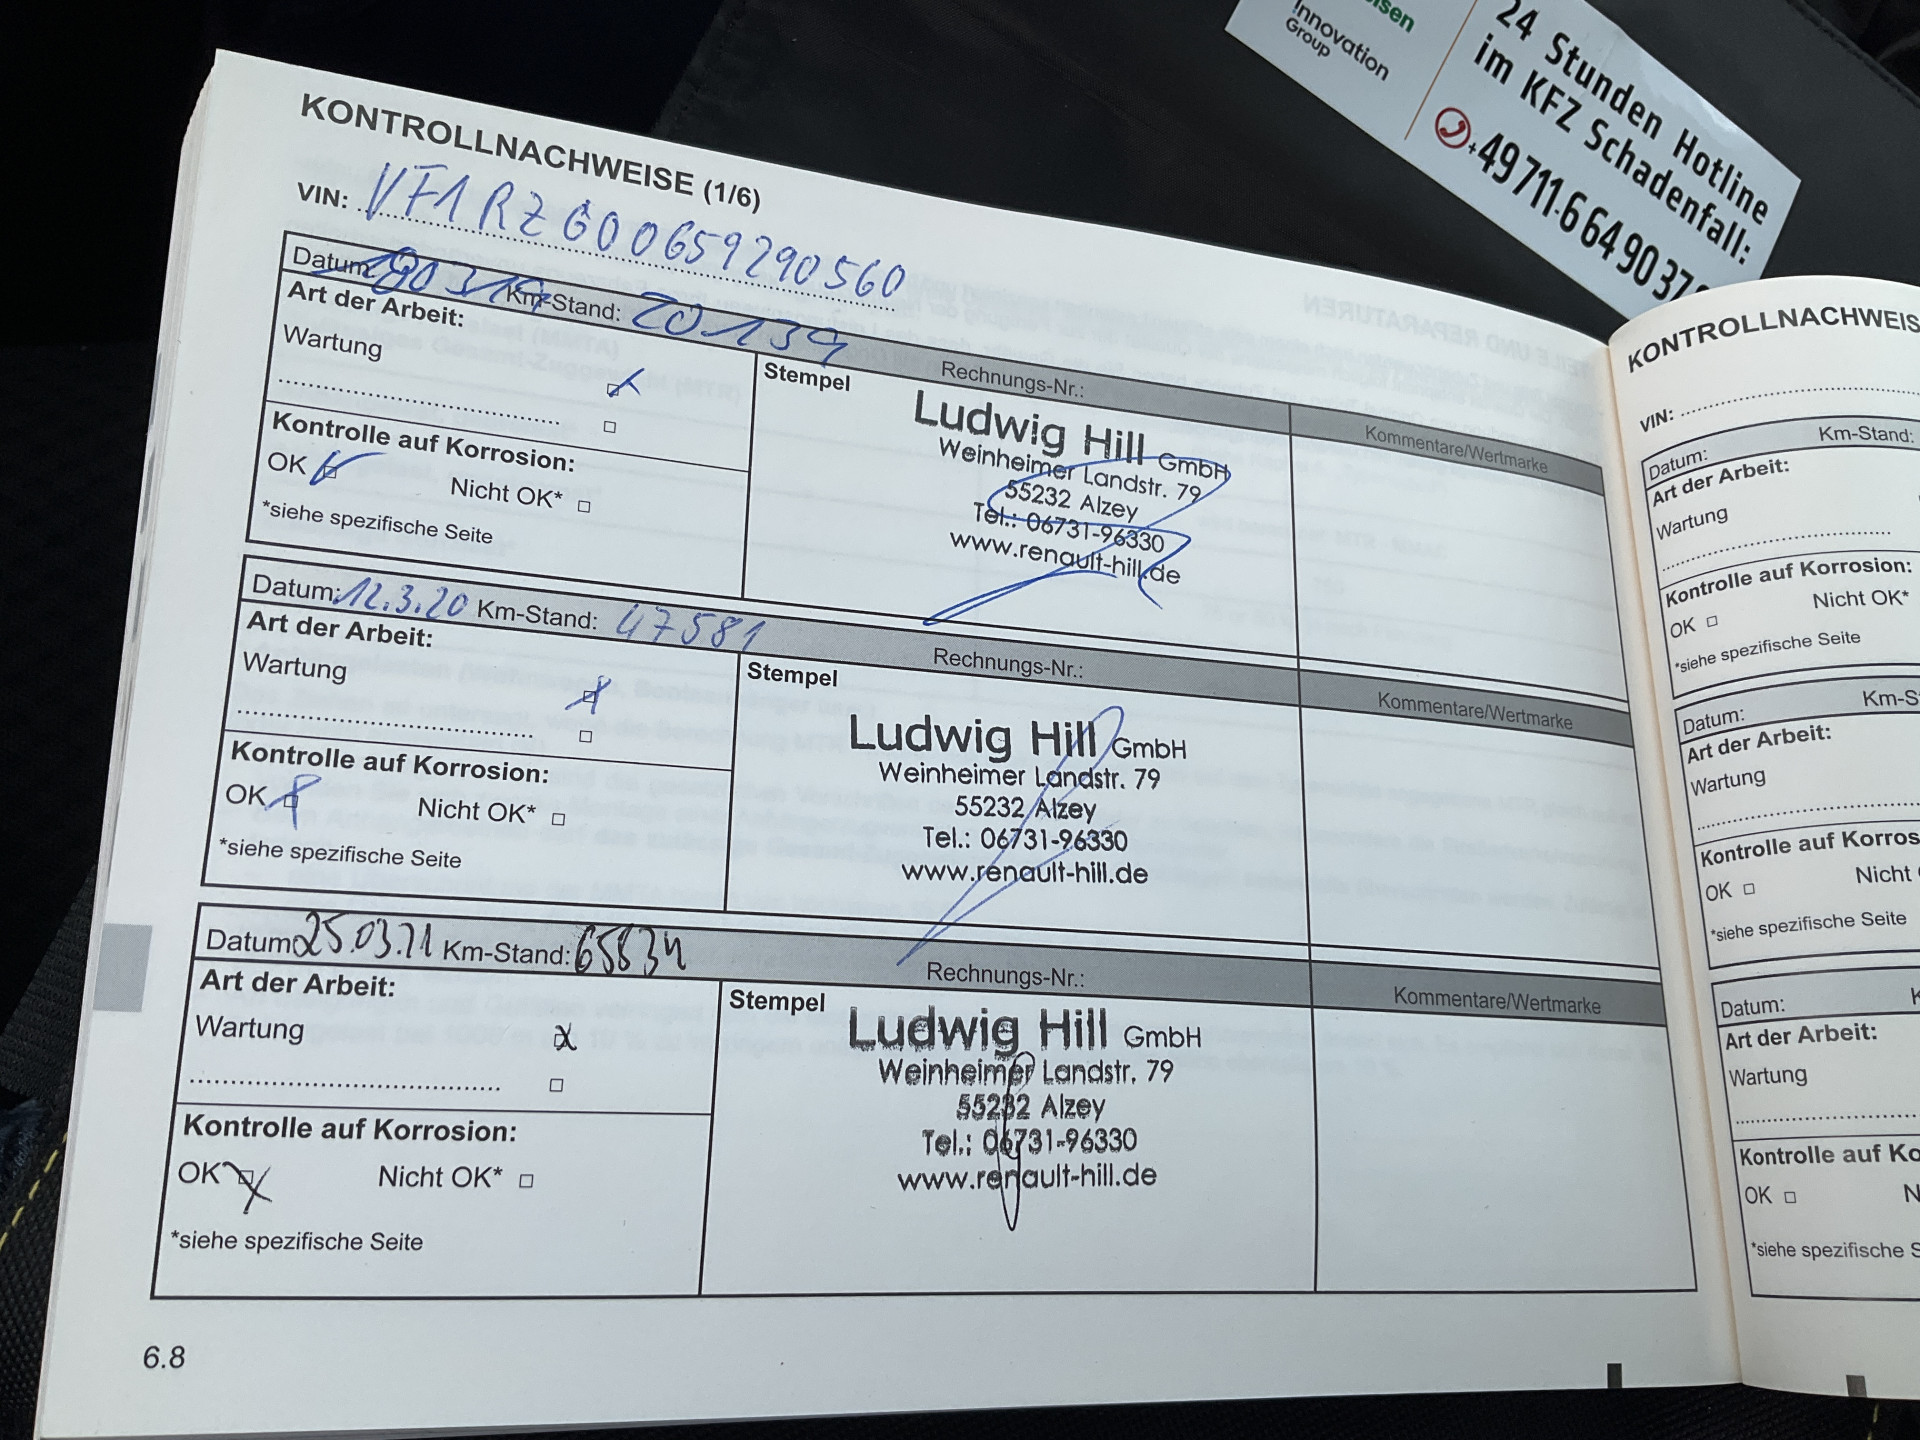 KONTROLLNACHWEISE (1/6)
VIN: VF1RZG00659290560
Datum: Km-Stand: 20139
Art der Arbeit:
Wartung
Kontrolle auf Korrosion:
OK Nicht OK*
*siehe spezifische Seite
Stempel
Rechnungs-Nr.:
Ludwig Hill GmbH
Weinheimer Landstr. 79
55232 Alzey
Tel.: 06731-96330
www.renault-hill.de
Kommentare/Wertmarke
Datum: 12.3.20 Km-Stand: 47581
Art der Arbeit:
Wartung
Kontrolle auf Korrosion:
OK Nicht OK*
*siehe spezifische Seite
Stempel
Rechnungs-Nr.:
Ludwig Hill GmbH
Weinheimer Landstr. 79
55232 Alzey
Tel.: 06731-96330
www.renault-hill.de
Kommentare/Wertmarke
Datum: 25.03.21 Km-Stand: 65834
Art der Arbeit:
Wartung
Kontrolle auf Korrosion:
OK Nicht OK*
*siehe spezifische Seite
Stempel
Rechnungs-Nr.:
Ludwig Hill GmbH
Weinheimer Landstr. 79
55232 Alzey
Tel.: 06731-96330
www.renault-hill.de
Kommentare/Wertmarke
6.8
Innovation
Group
24 Stunden Hotline
im KFZ Schadenfall:
+49 711-6 64 90 37
KONTROLLNACHWEIS
VIN:
Datum: Km-Stand:
Art der Arbeit:
Wartung
Kontrolle auf Korrosion:
OK Nicht OK*
*siehe spezifische Seite
Datum: Km-S
Art der Arbeit:
Wartung
Kontrolle auf Korros
OK Nicht
*siehe spezifische Seite
Datum: K
Art der Arbeit:
Wartung
Kontrolle auf Ko
OK N
*siehe spezifische S